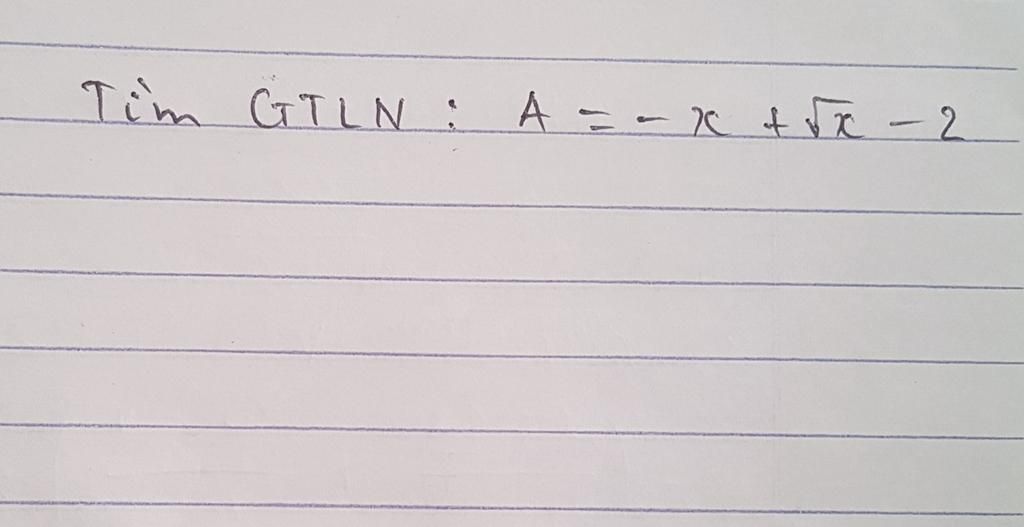 Tìm GTLN : A = - x + √x - 2